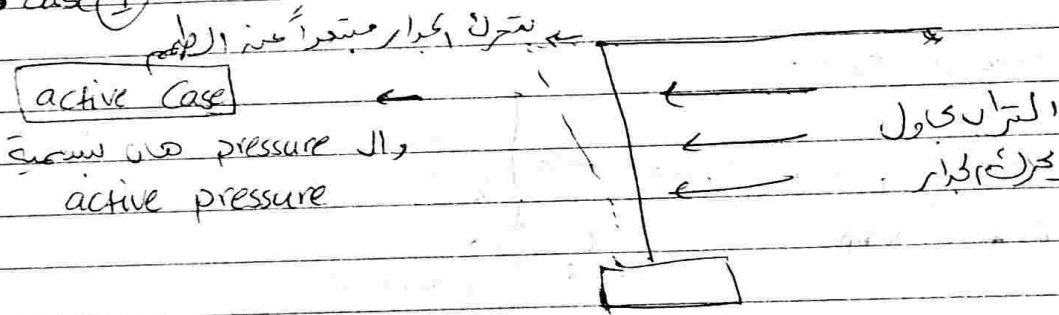 case (1)
يتحرك الجدار مبتعداً عن الطمم
active Case
وال pressure هان بسمية
active pressure
التراب بحاول
يحرك الجدار